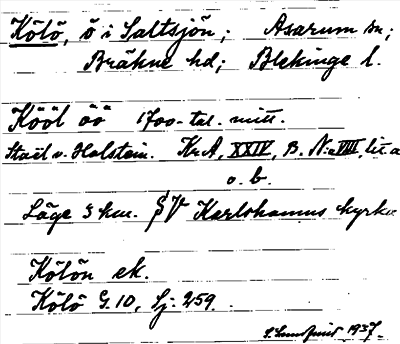 Kölö, ö i Saltsjön; Asarum sn;
Bräkne hd; Blekinge l.
Kööl öö 1700-tal. mitt.
Staël v. Holstein. Kr.A, XXIV, B. N:o VIII, lit. a
o. b.
Läge 3 km. SV Karlshamns kyrka
Kölön ek.
Kölö G. 10, Sj. 259.
1937.